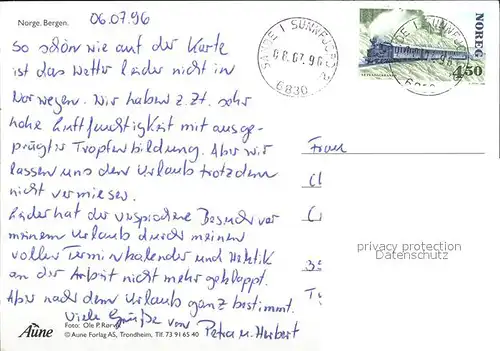 Norge. Bergen.
06.07.96
So schön wie auf der Karte
ist das Wetter leider nicht in
Norwegen. Wir haben z.Zt. sehr
hohe Luftfeuchtigkeit mit ausge-
prägter Tropfenbildung. Aber wir
lassen uns den Urlaub trotzdem
nicht vermiesen.
Leider hat der versprochene Besuch vor
meinem Urlaub durch meinen
vollen Terminkalender und Hektik
an der Arbeit nicht mehr geklappt.
Aber nach dem Urlaub ganz bestimmt.
Viele Grüße von Petra u. Herbert
Aune
Foto: Ole P. Rørvik
© Aune Forlag AS, Trondheim, Tlf. 73 91 65 40
SANDE I SUNNFJORD
08.07.96
6830
NOREG
450
Frau
privacy protection
VERAMA.DE